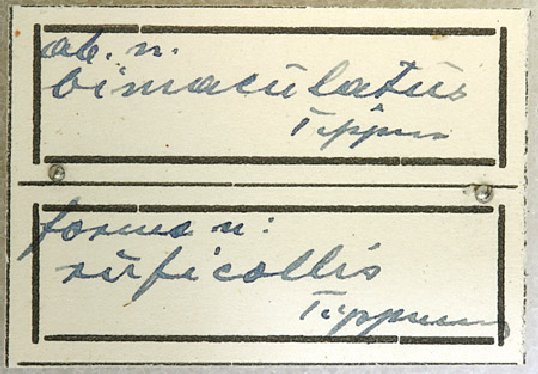 ab. n.
bimaculatus
Tippm
forma n:
ruficollis
Tippm